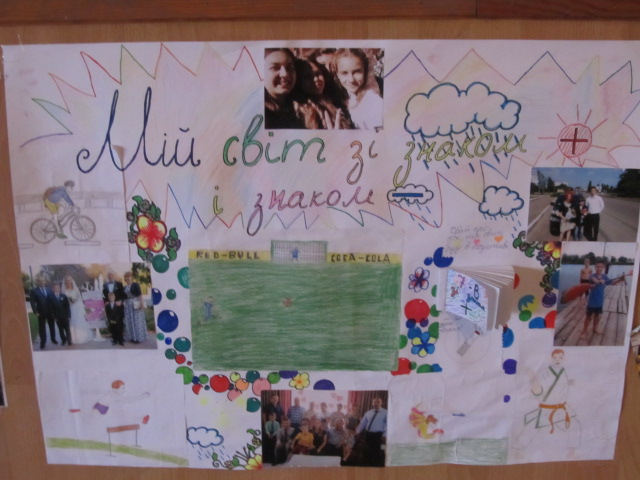 Мій світ зі знаком
і знаком
RED-BULL COCA-COLA